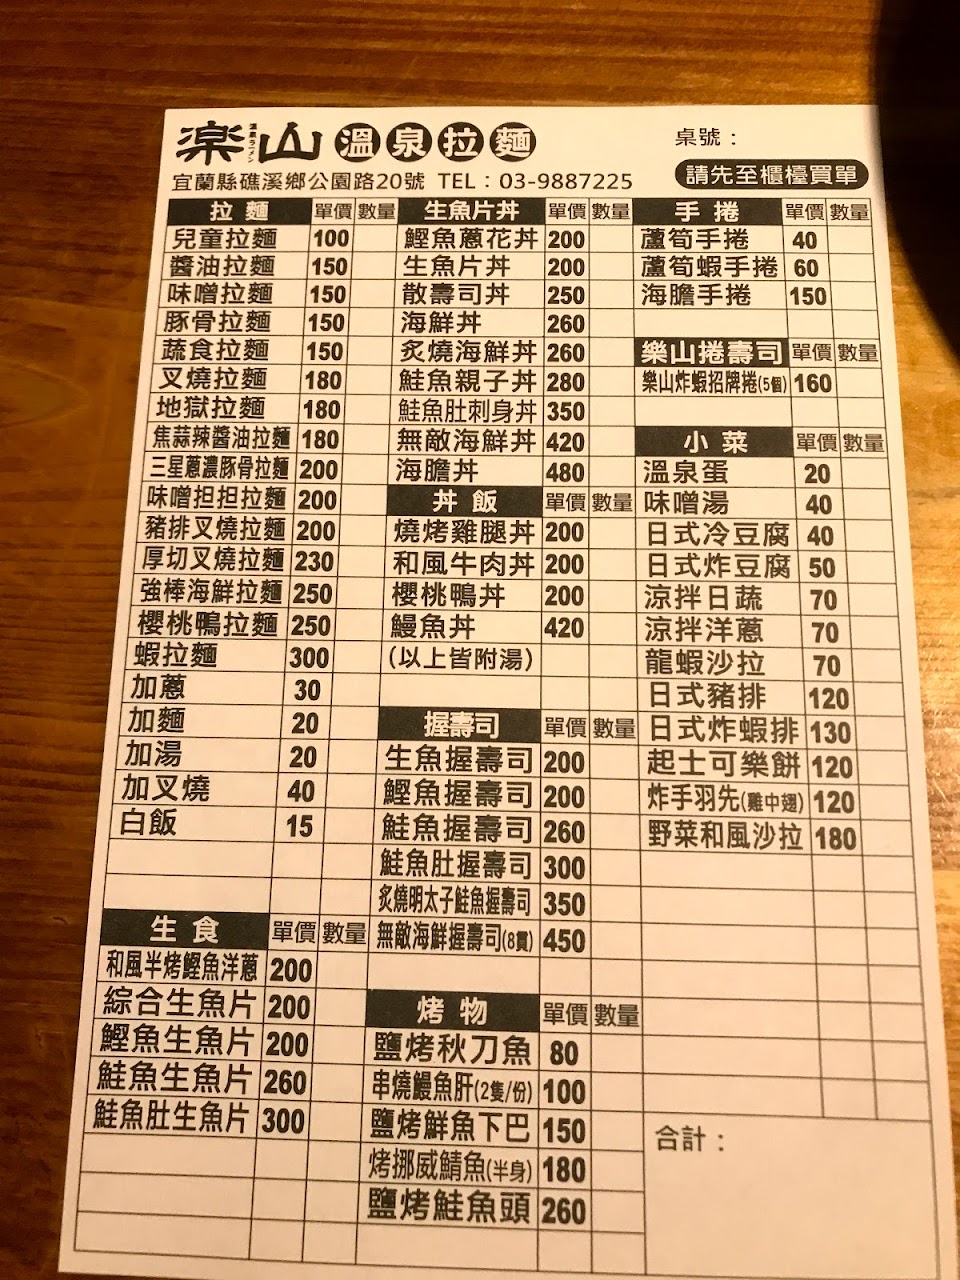 楽山 温泉ラーメン 溫泉拉麵
桌號：
宜蘭縣礁溪鄉公園路20號 TEL：03-9887225
請先至櫃檯買單
拉麵 單價 數量
兒童拉麵 100
醬油拉麵 150
味噌拉麵 150
豚骨拉麵 150
蔬食拉麵 150
叉燒拉麵 180
地獄拉麵 180
焦蒜辣醬油拉麵 180
三星蔥濃豚骨拉麵 200
味噌担担拉麵 200
豬排叉燒拉麵 200
厚切叉燒拉麵 230
強棒海鮮拉麵 250
櫻桃鴨拉麵 250
蝦拉麵 300
加蔥 30
加麵 20
加湯 20
加叉燒 40
白飯 15
生食 單價 數量
和風半烤鰹魚洋蔥 200
綜合生魚片 200
鰹魚生魚片 200
鮭魚生魚片 260
鮭魚肚生魚片 300
生魚片丼 單價 數量
鰹魚蔥花丼 200
生魚片丼 200
散壽司丼 250
海鮮丼 260
炙燒海鮮丼 260
鮭魚親子丼 280
鮭魚肚刺身丼 350
無敵海鮮丼 420
海膽丼 480
丼飯 單價 數量
燒烤雞腿丼 200
和風牛肉丼 200
櫻桃鴨丼 200
鰻魚丼 420
(以上皆附湯)
握壽司 單價 數量
生魚握壽司 200
鰹魚握壽司 200
鮭魚握壽司 260
鮭魚肚握壽司 300
炙燒明太子鮭魚握壽司 350
無敵海鮮握壽司(8貫) 450
烤物 單價 數量
鹽烤秋刀魚 80
串燒鰻魚肝(2隻/份) 100
鹽烤鮮魚下巴 150
烤挪威鯖魚(半身) 180
鹽烤鮭魚頭 260
手捲 單價 數量
蘆筍手捲 40
蘆筍蝦手捲 60
海膽手捲 150
樂山捲壽司 單價 數量
樂山炸蝦招牌捲(5個) 160
小菜 單價 數量
溫泉蛋 20
味噌湯 40
日式冷豆腐 40
日式炸豆腐 50
涼拌日蔬 70
涼拌洋蔥 70
龍蝦沙拉 70
日式豬排 120
日式炸蝦排 130
起士可樂餅 120
炸手羽先(雞中翅) 120
野菜和風沙拉 180
合計：